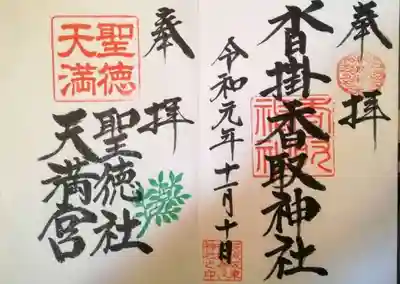 奉拝
沓掛香取神社
令和元年十二月十日
奉拝
聖徳社
天満宮
聖徳
天満